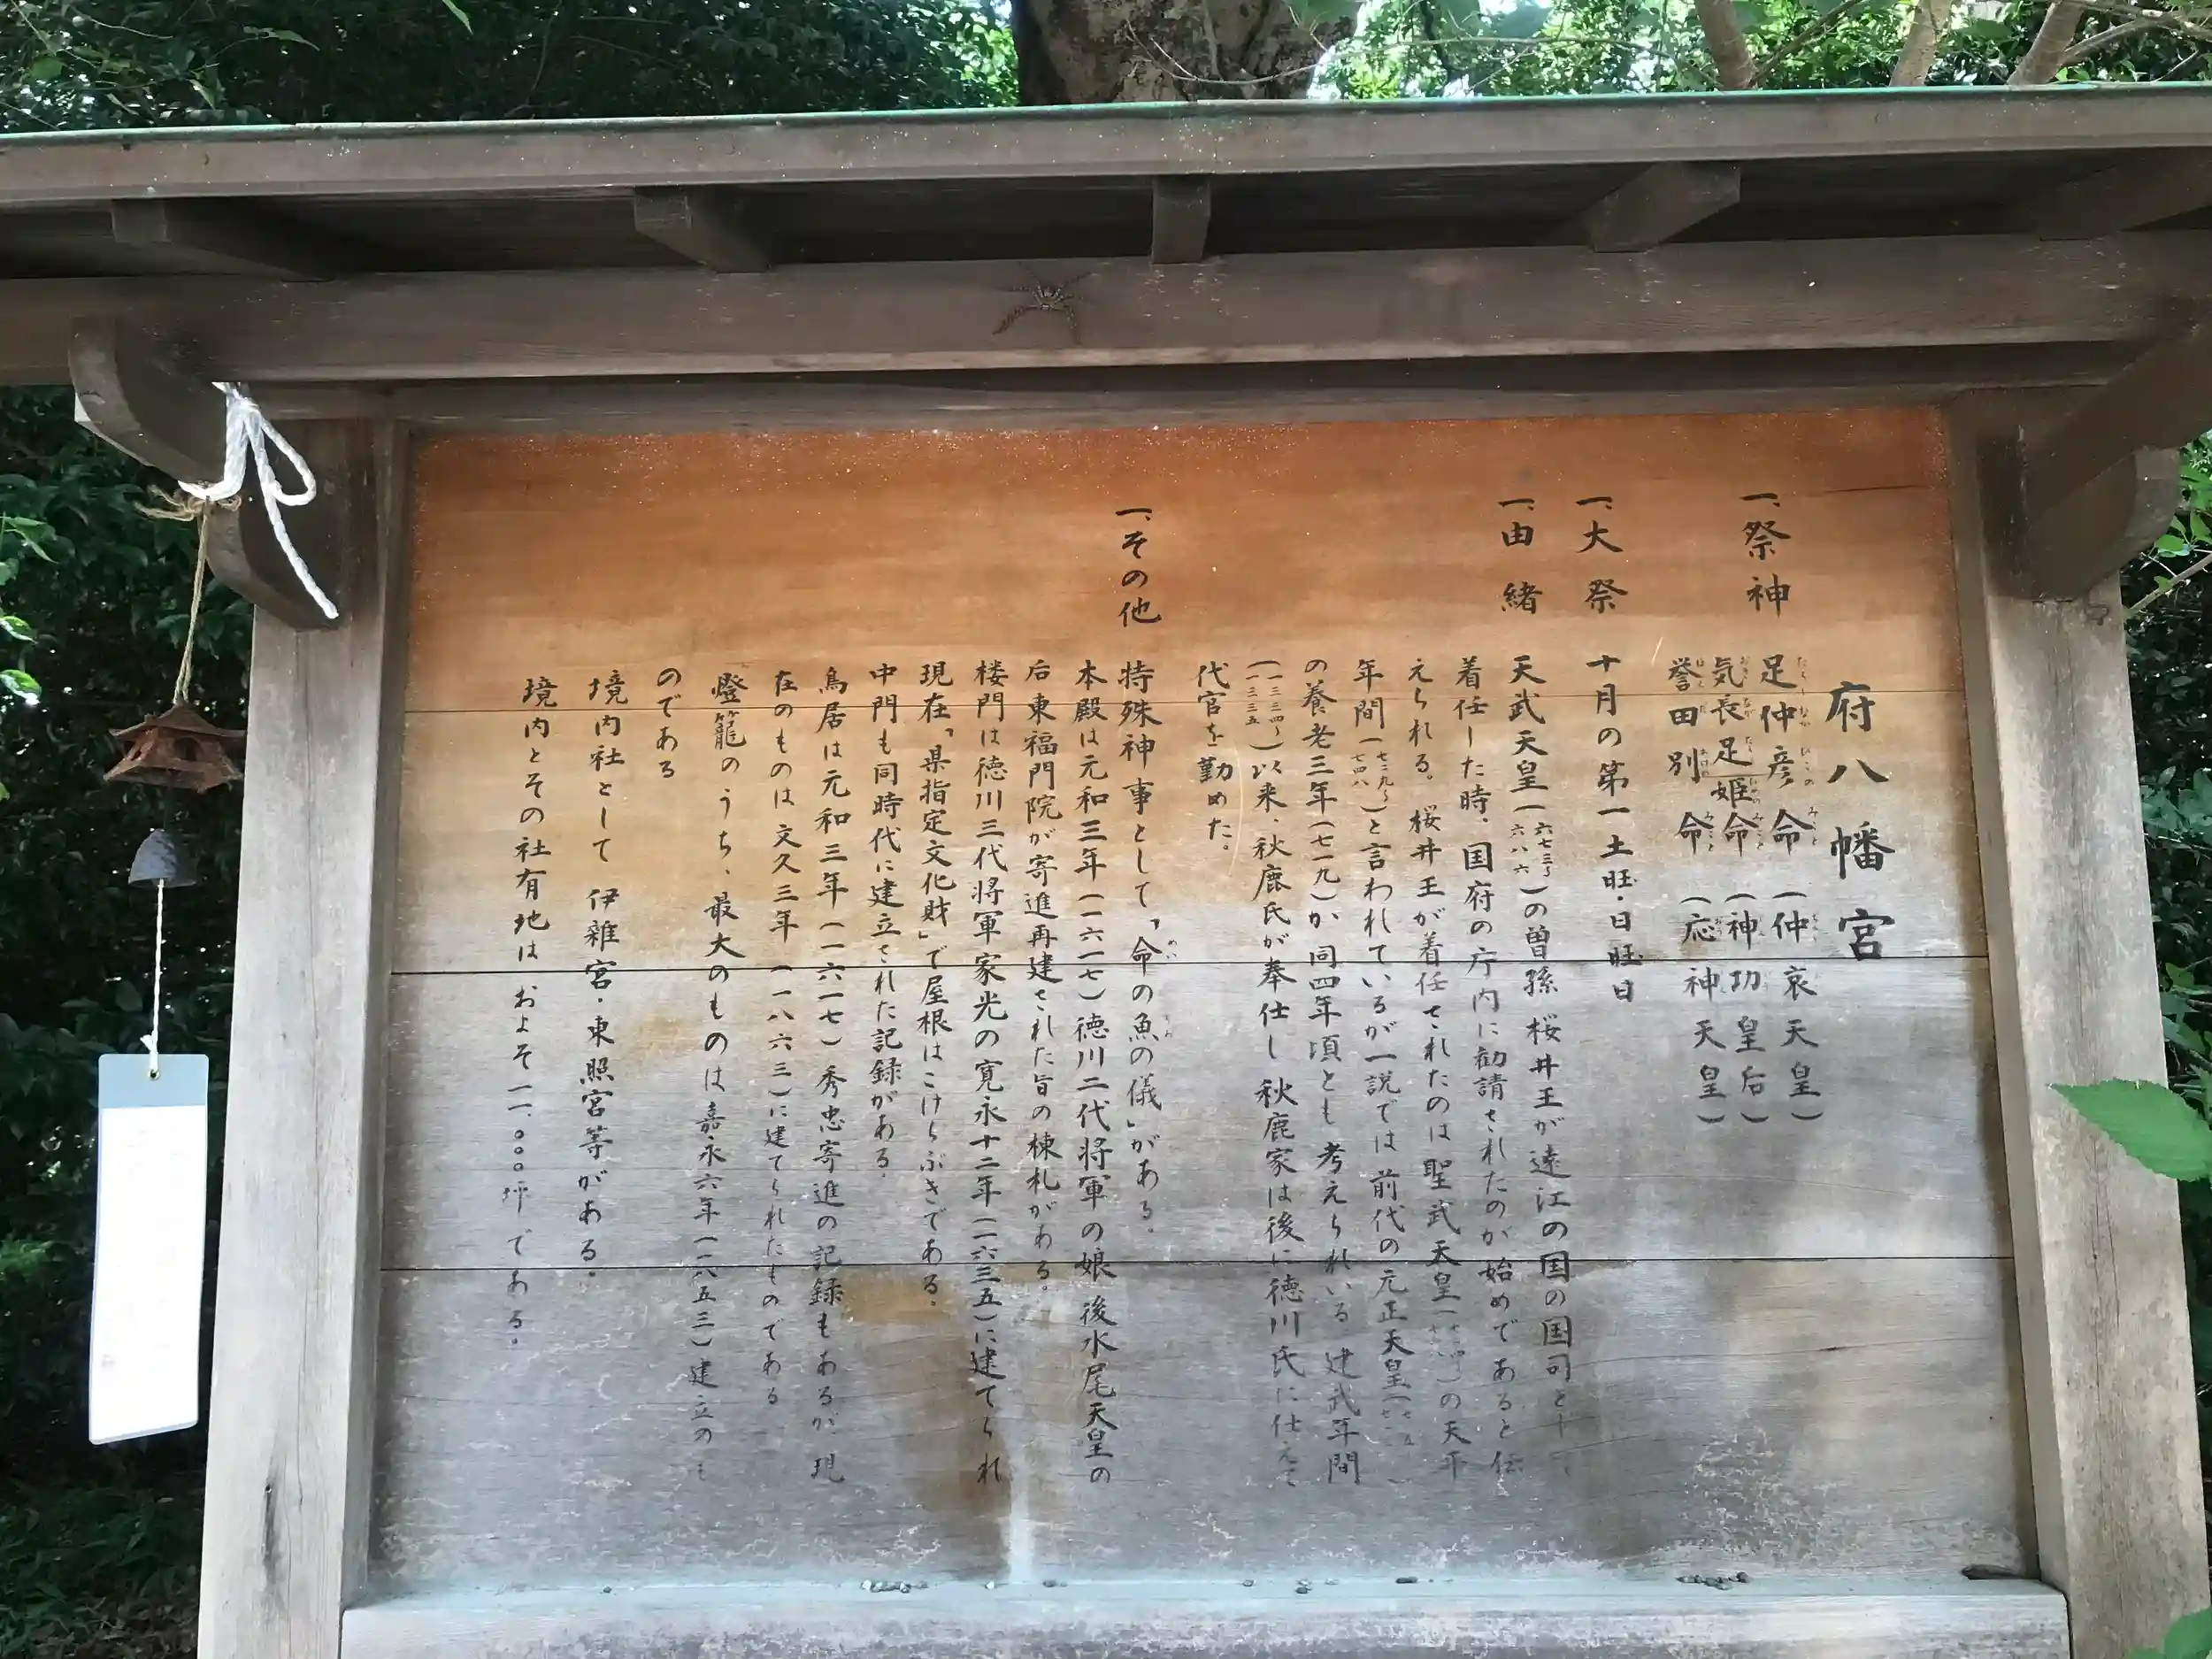 府八幡宮
一、祭神 足仲彦命(仲哀天皇)
気長足姫命(神功皇后)
誉田別命(応神天皇)
一、大祭 十月の第一土旺・日旺日
一、由緒 天武天皇(六七三〜六八六)の曽孫桜井王が遠江の国の国司と
着任した時、国府の庁内に勧請されたのが始めであると伝
えられる。桜井王が着任されたのは聖武天皇()の天平
年間(七二九〜七四八)と言われているが一説では前代の元正天皇()
の養老三年(七一九)か同四年頃とも考えられいる 建武年間
(一三三四〜一三三五)以来、秋鹿氏が奉仕し秋鹿家は後に徳川氏に仕えて
代官を勤めた。
一、その他 特殊神事として、「命の魚の儀」がある。
本殿は元和三年(一六一七)徳川二代将軍の娘後水尾天皇の
后東福門院が寄進再建された旨の棟札がある。
楼門は徳川三代将軍家光の寛永十二年(一六三五)に建てられ
現在「県指定文化財」で屋根はこけらぶきである。
中門も同時代に建立された記録がある。
鳥居は元和三年(一六一七)秀忠寄進の記録もあるが、現
在のものは文久三年(一八六三)に建てられたものである
燈籠のうち、最大のものは嘉永六年(一八五三)建立のも
のである
境内社として 伊雑宮・東照宮等がある。
境内とその社有地は およそ一一、〇〇〇坪である。